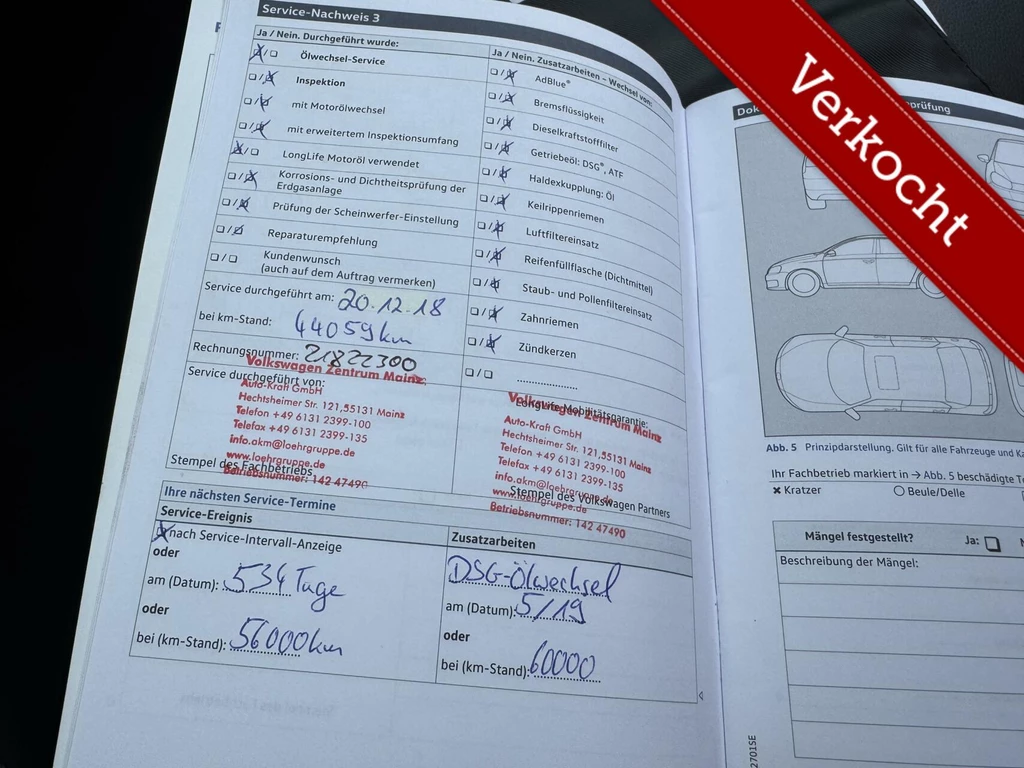 Service-Nachweis 3
Ja / Nein. Durchgeführt wurde:
Ölwechsel-Service
Inspektion
mit Motorölwechsel
mit erweitertem Inspektionsumfang
LongLife Motoröl verwendet
Korrosions- und Dichtheitsprüfung der
Erdgasanlage
Prüfung der Scheinwerfer-Einstellung
Reparaturempfehlung
Kundenwunsch
(auch auf dem Auftrag vermerken)
Service durchgeführt am: 20.12.18
bei km-Stand: 44059 km
Rechnungsnummer: 21822300
Service durchgeführt von:
Volkswagen Zentrum Mainz
Auto-Kraft GmbH
Hechtsheimer Str. 121, 55131 Mainz
Telefon +49 6131 2399-100
Telefax +49 6131 2399-135
info.akm@loehrgruppe.de
www.loehrgruppe.de
Betriebsnummer: 142 47490
Stempel des Fachbetriebs
Ja / Nein. Zusatzarbeiten – Wechsel von:
AdBlue®
Bremsflüssigkeit
Dieselkraftstofffilter
Getriebeöl: DSG®, ATF
Haldexkupplung: Öl
Keilrippenriemen
Luftfiltereinsatz
Reifenfüllflasche (Dichtmittel)
Staub- und Pollenfiltereinsatz
Zahnriemen
Zündkerzen
....................
LongLife Mobilitätsgarantie:
Volkswagen Zentrum Mainz
Auto-Kraft GmbH
Hechtsheimer Str. 121, 55131 Mainz
Telefon +49 6131 2399-100
Telefax +49 6131 2399-135
info.akm@loehrgruppe.de
www.loehrgruppe.de
Betriebsnummer: 142 47490
Stempel des Volkswagen Partners
Ihre nächsten Service-Termine
Service-Ereignis
nach Service-Intervall-Anzeige
oder
am (Datum): 534 Tage
oder
bei (km-Stand): 56000 km
Zusatzarbeiten
DSG-Ölwechsel
am (Datum): 5/19
oder
bei (km-Stand): 60000
Verkocht
Abb. 5 Prinzipdarstellung. Gilt für alle Fahrzeuge und
Ihr Fachbetrieb markiert in → Abb. 5 beschädigte
Kratzer
Beule/Delle
Mängel festgestellt? Ja:
Beschreibung der Mängel:
2701SE